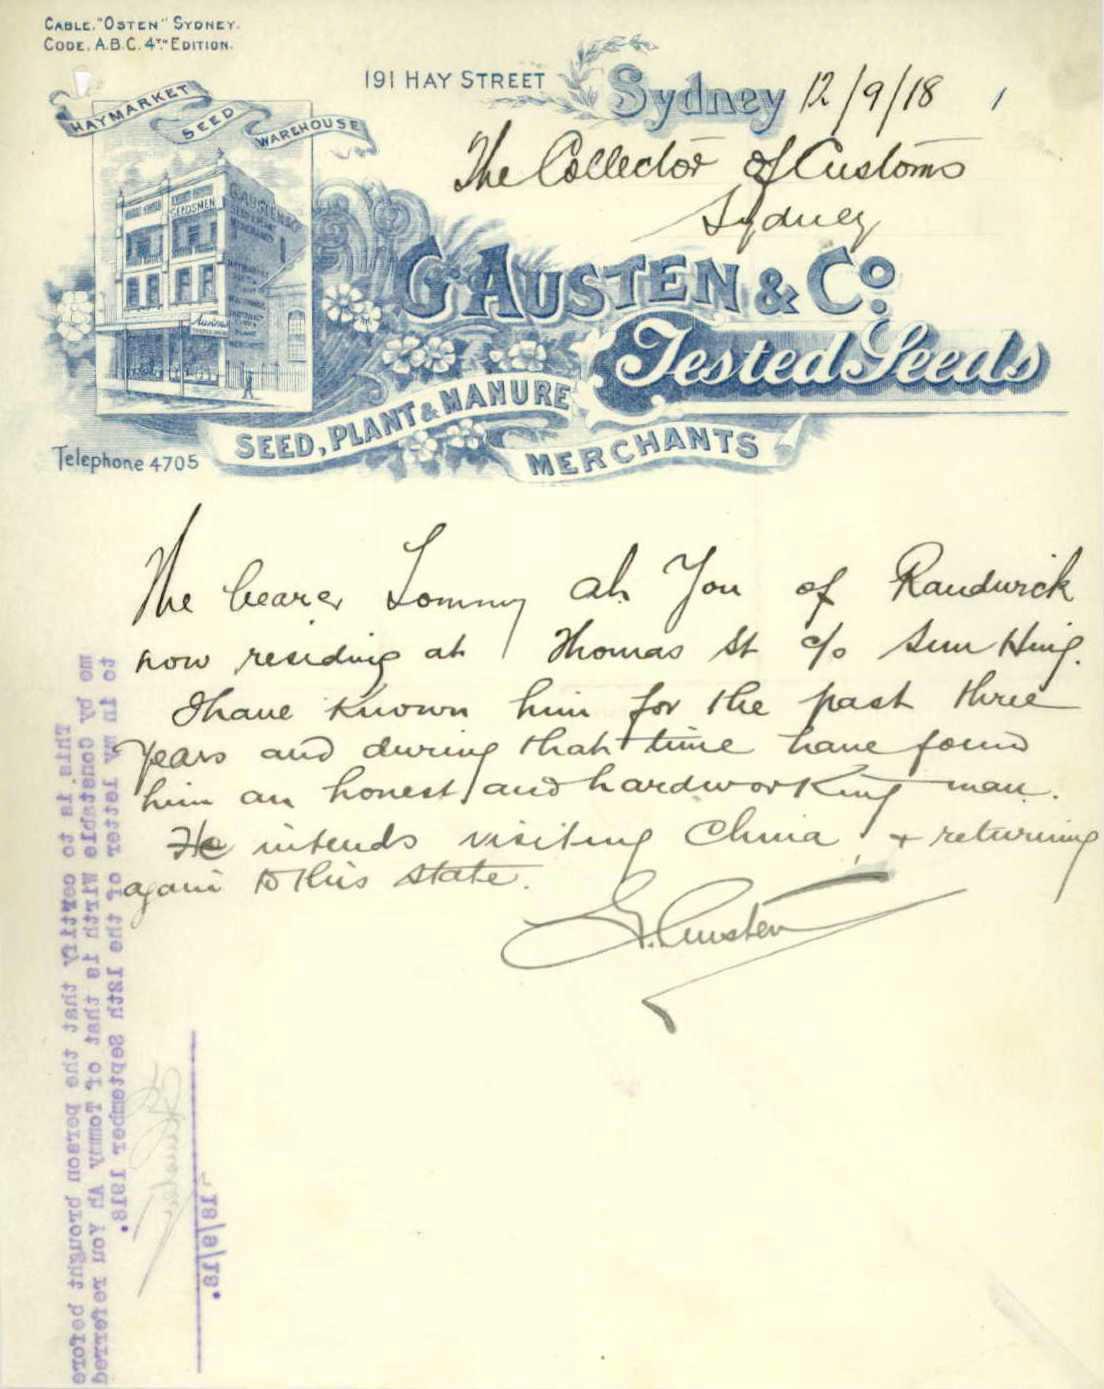 CABLE. "OSTEN" SYDNEY.
CODE. A.B.C. 4TH EDITION.
191 HAY STREET Sydney 12/9/18
HAYMARKET SEED WAREHOUSE
The Collector of Customs
Sydney
SEEDSMEN
G. AUSTEN & Co.
Tested Seeds
SEED, PLANT & MANURE
MERCHANTS
Telephone 4705
The bearer Tommy Ah You of Randwick
now residing at Thomas St c/o Sun Hing.
I have known him for the past three
years and during that time have found
him an honest and hardworking man.
He intends visiting China, + returning
again to this state.
G. Austen
This is to certify that the person brought before
me by Constable Wirth is that of Tommy Ah You referred
to in my letter of the 12th September 1918.
G. Austen
18/9/18.